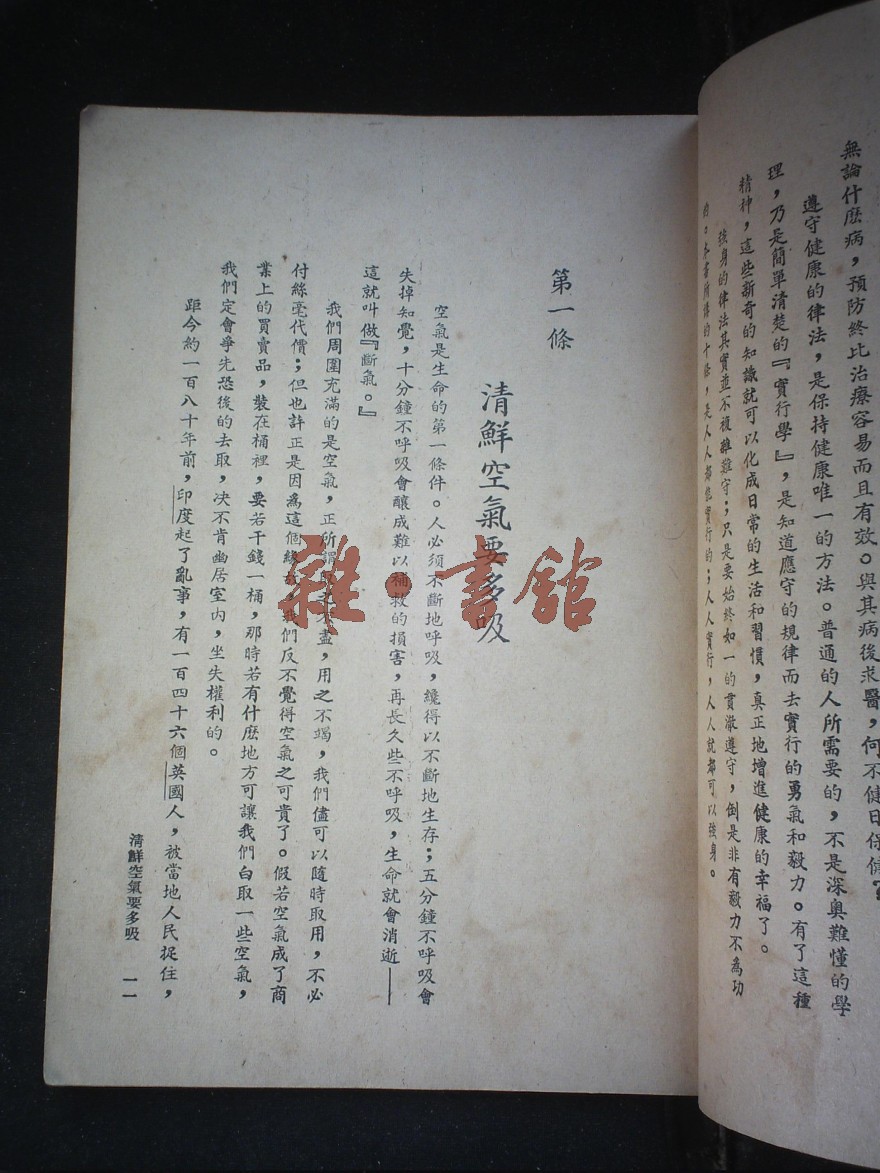 無論什麽病，預防終比治療容易而且有效。與其病後求醫，何不健日保健？
遵守健康的律法，是保持健康唯一的方法。普通的人所需要的，不是深奧難懂的學
理，乃是簡單清楚的『實行學』，是知道應守的規律而去實行的勇氣和毅力。有了這種
精神，這些新奇的知識就可以化成日常的生活和習慣，真正地增進健康的幸福了。
強身的律法其實並不複雜難守；只是要始終如一的貫澈遵守，倒是非有毅力不爲功
的。本書所講的十條，是人人都能實行的；人人實行，人人就都可以強身。
第一條
清鮮空氣要多吸
空氣是生命的第一條件。人必須不斷地呼吸，纔得以不斷地生存；五分鐘不呼吸會
失掉知覺，十分鐘不呼吸會釀成難以補救的損害，再長久些不呼吸，生命就會消逝——
這就叫做『斷氣。』
我們周圍充滿的是空氣，正所謂取之不盡，用之不竭，我們儘可以隨時取用，不必
付絲毫代價；但也許正是因爲這個緣故，我們反不覺得空氣之可貴了。假若空氣成了商
業上的買賣品，裝在桶裡，要若干錢一桶，那時若有什麽地方可讓我們白取一些空氣，
我們定會爭先恐後的去取，决不肯幽居室內，坐失權利的。
距今約一百八十年前，印度起了亂事，有一百四十六個英國人，被當地人民捉住，
清鮮空氣要多吸 一一
雜·書館